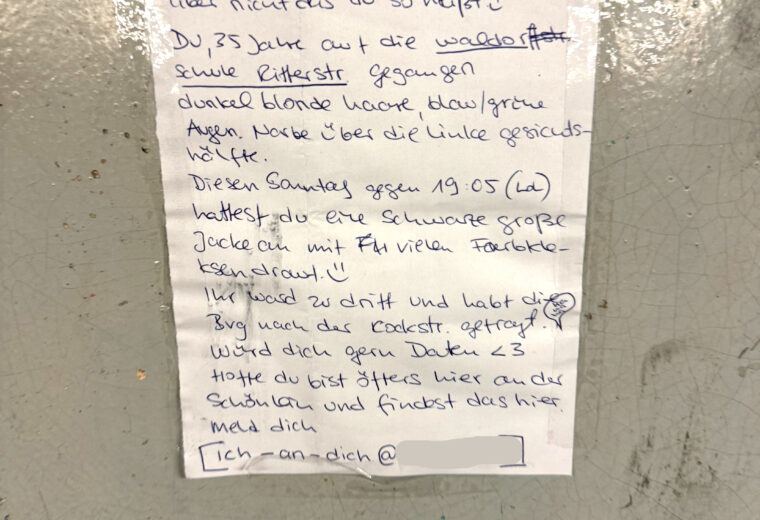 über nicht das du so heißt
Du, 35 Jahre auf die waldorf
schule Ritterstr gegangen
dunkel blonde haare, blau/grüne
Augen. Narbe über die linke gesichds-
hälfte.
Diesen Sonntag gegen 19:05
hattest du eine Schwarze große
Jacke an mit vielen Farbkle-
ksen drauf. :)
Ihr ward zu dritt und habt die
Bvg nach der Kockstr. gefragt.
Würd dich gern Daten <3
Hoffe du bist öfters hier an der
Schönlein und findest das hier.
meld dich
[ich-an-dich@ ]